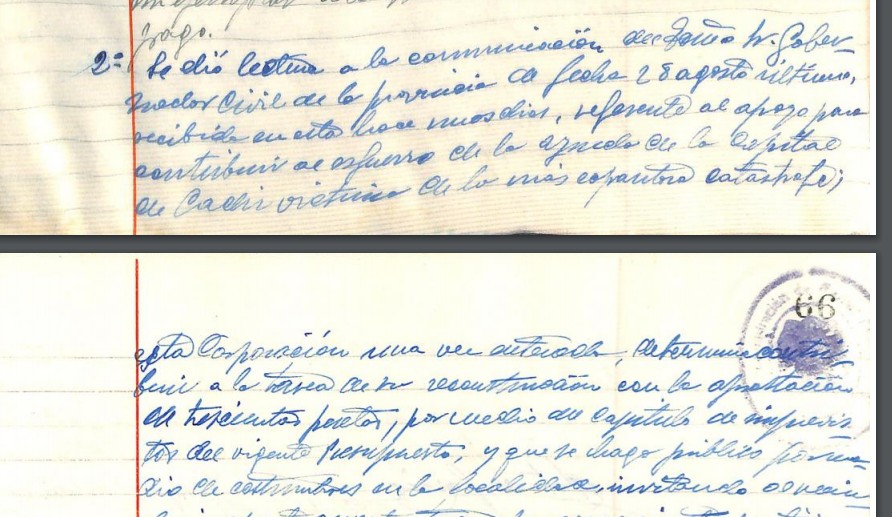 pago.
2º Se dió lectura a la comunicación del Exmo Sr. Gober-
nador Civil de la provincia de fecha 28 agosto último,
recibida en esta hace unos dias, referente al apoyo para
contribuir al esfuerzo de la ayuda de la Capital
de Cadiz victima de la más espantosa catástrofe;
66
esta Corporación una vez enterada, determina contri-
buir a la tarea de su reconstrucción con la aportación
de trescientas pesetas, por medio del capitulo de imprevis
tos del vigente Presupuesto, y que se haga público por me-
dio de costumbres en la localidad, invitando al vecin-